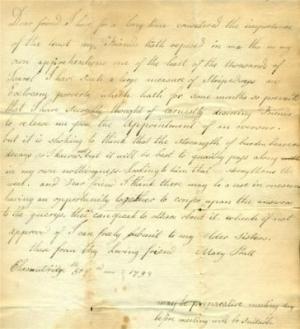 Dear friend I have for a long time considered the importance
of the trust my friends hath reposed in me tho in my
own apprehentions one of the least of the thousands of
I have such a large measure of
poverty which hath for some months so
that I have thought of earnestly desireing friends
to release me from the appointment of an overseer
but it is shocking to think that the strength of burden bearers
decays so I know but it will be best to quietly pass along
in my own nothingness looking to him that strengthens the
weak. and Dear friend I think there may be a use in
having an opportunity together to confer upon the answers
to the querys, that can speak to others about it. which if not
approved of I can freely submit to my Elder Sisters.
these from thy loving friend Mary
1793
may be preparative meeting day
before meeting will be suitable